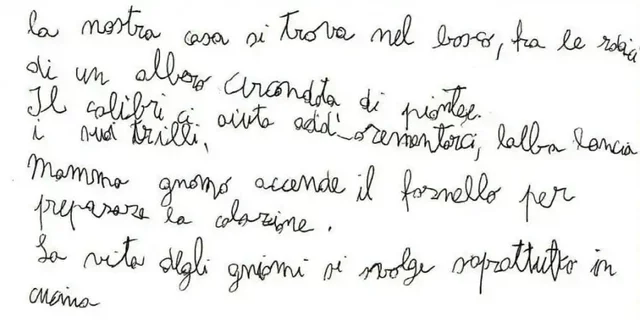 la nostra casa si trova nel bosco, fra le radici
di un albero circondata di piante.
Il colibrì ci aiuta add'ormentarci, l'alba lancia
i suoi trilli,
Mamma gnomo accende il fornello per
preparare la colazione.
La vita degli gniomi si svolge soprattutto in
cucina